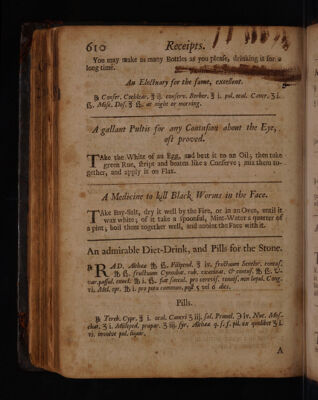 610 Receipts.
You may make as many Bottles as you please, drinking it for a
long time.
An Electuary for the same, excellent.
℞ Conser. Cochlear. ℥ conserv. Berber. ℥ i. pul. ocul. Cancr. ʒ i.
ß. Misc. Dos. ʒ ß. at night or morning.
A gallant Pultis for any Contusion about the Eye,
oft proved.
TAke the White of an Egg, and beat it to an Oil; then take
green Rue, stript and beaten like a Conserve; mix them to-
gether, and apply it on Flax.
A Medicine to kill Black Worms in the Face.
TAke Bay-Salt, dry it well by the Fire, or in an Oven, until it
wax white; of it take a spoonful, Mint-Water a quarter of
a pint; boil them together well, and anoint the Face with it.
An admirable Diet-Drink, and Pills for the Stone.
℞ RAD. Althææ ℔ ß. Filipend. ℥ iv. fructuum
℔ ß. fructuum Cynosbat. rub. & ℔ ß. U-
var. passul. ℔ i. ß. pro
vi. Mel. opt. ℔ i. pro potu communi, post 5 vel 6 dies.
Pills.
℞ Tereb. Cypr. ℥ i. ocul. Cancri ʒ iij. sal. Prunel. ℈ iv. Nuc. Mos-
chat. ʒ i. Milleped. præpar. ʒ iij. syr. Althææ q. s. f. pil. ex qualibet ʒ i.
vi. involve pul. liquir.
A